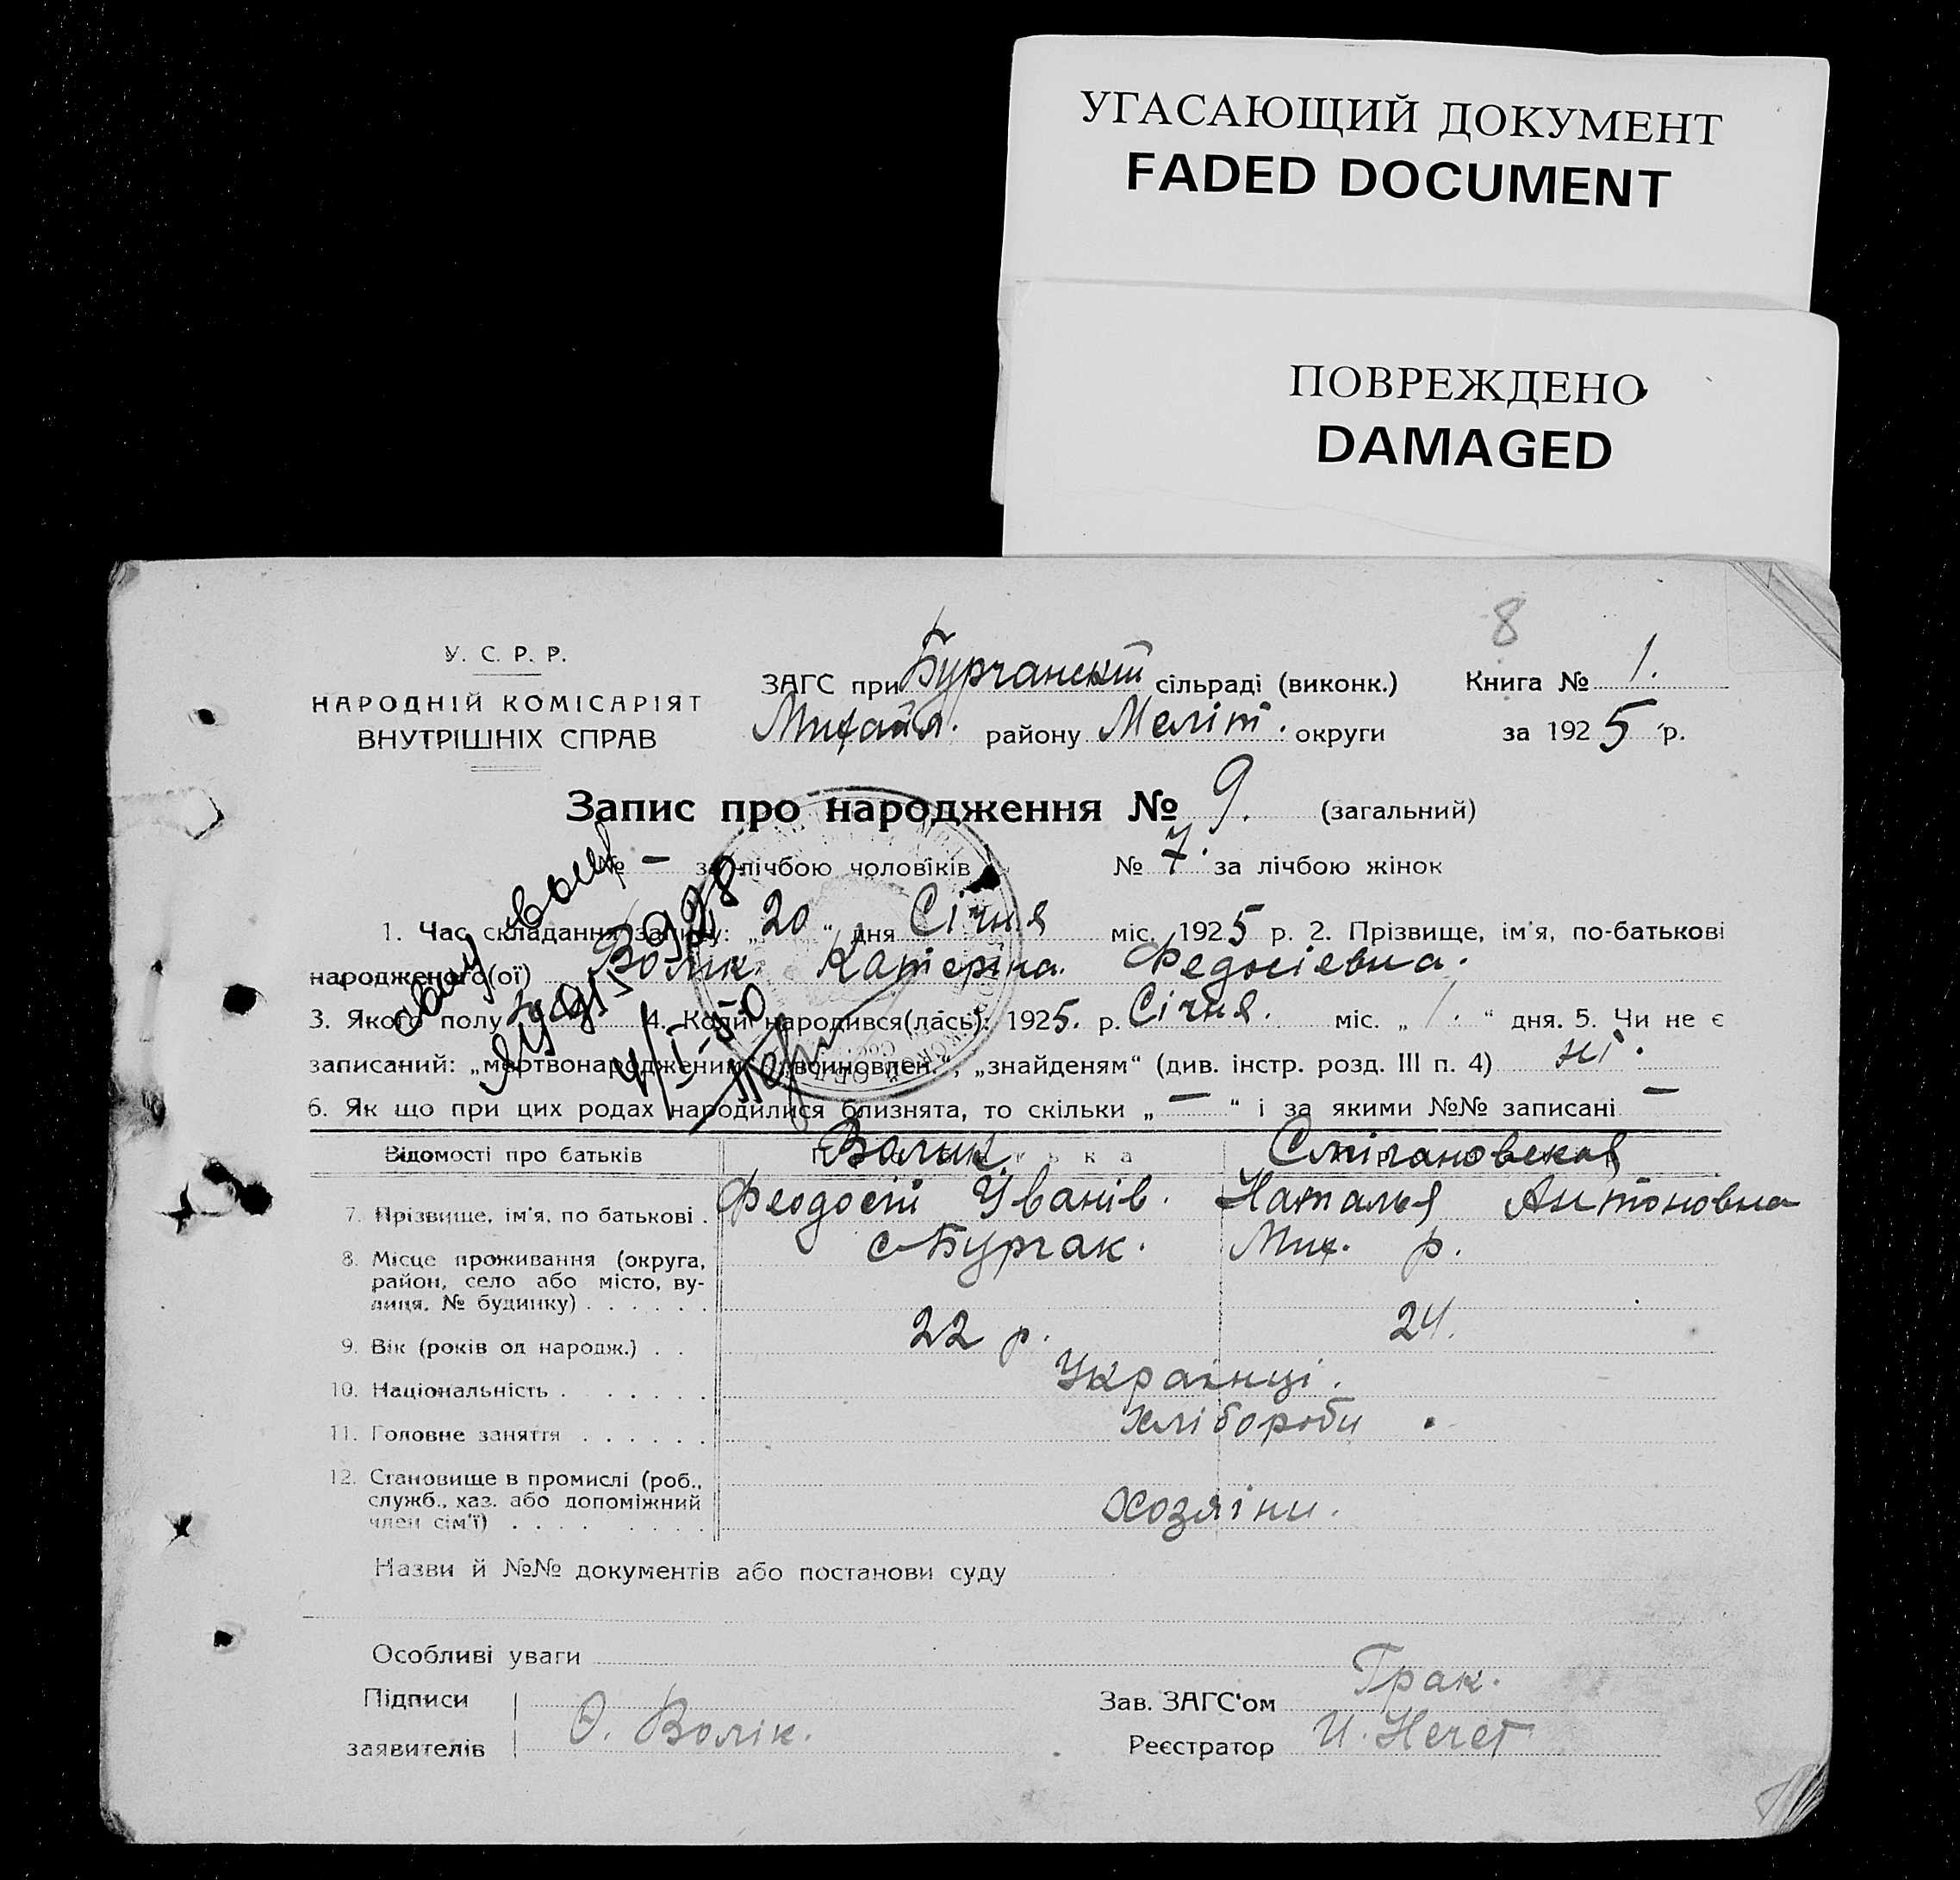 УГАСАЮЩИЙ ДОКУМЕНТ
FADED DOCUMENT
ПОВРЕЖДЕНО
DAMAGED
8
У. С. Р. Р.
НАРОДНІЙ КОМІСАРІЯТ
ВНУТРІШНІХ СПРАВ
ЗАГС при Бурчанскій сільраді (виконк.) Книга № 1.
Михайл. району Меліт. округи за 1925 р.
Запис про народження № 9. (загальний)
№ — за лічбою чоловіків № 7. за лічбою жінок
1. Час складання запису: „20“ дня Січня міс. 1925 р. 2. Прізвище, ім'я, по-батькові
народженого(ої) Волик Катеріна Федосіевна.
3. Якого полу 4. Коли народився(лась): 1925. р. Січня. міс. „1.“ дня. 5. Чи не є
записаний: „мертвонародженим“, „всиновлен.“, „знайденям“ (див. інстр. розд. III п. 4) ні.
6. Як що при цих родах народилися близнята, то скільки „—“ і за якими №№ записані —
Відомості про батьків Волик
7. Прізвище, ім'я, по батькові . Феодосій Іванів. Наталья Антоновна
8. Місце проживання (округа, с Бурчак. Мих. р.
район, село або місто, ву-
лиця, № будинку) . . . . . .
9. Вік (років од народж.) . . 22 р. 24.
10. Національність . . . . . . Українці.
11. Головне заняття . . . . . . хлібороби
12. Становище в промислі (роб.,
служб., хаз. або допоміжний Хозяіни.
член сім'ї) . . . . . . . . .
Назви й №№ документів або постанови суду
Особливі уваги
Підписи Зав. ЗАГС'ом Грак.
заявителів Ѳ. Волік. Реєстратор И. Нечет